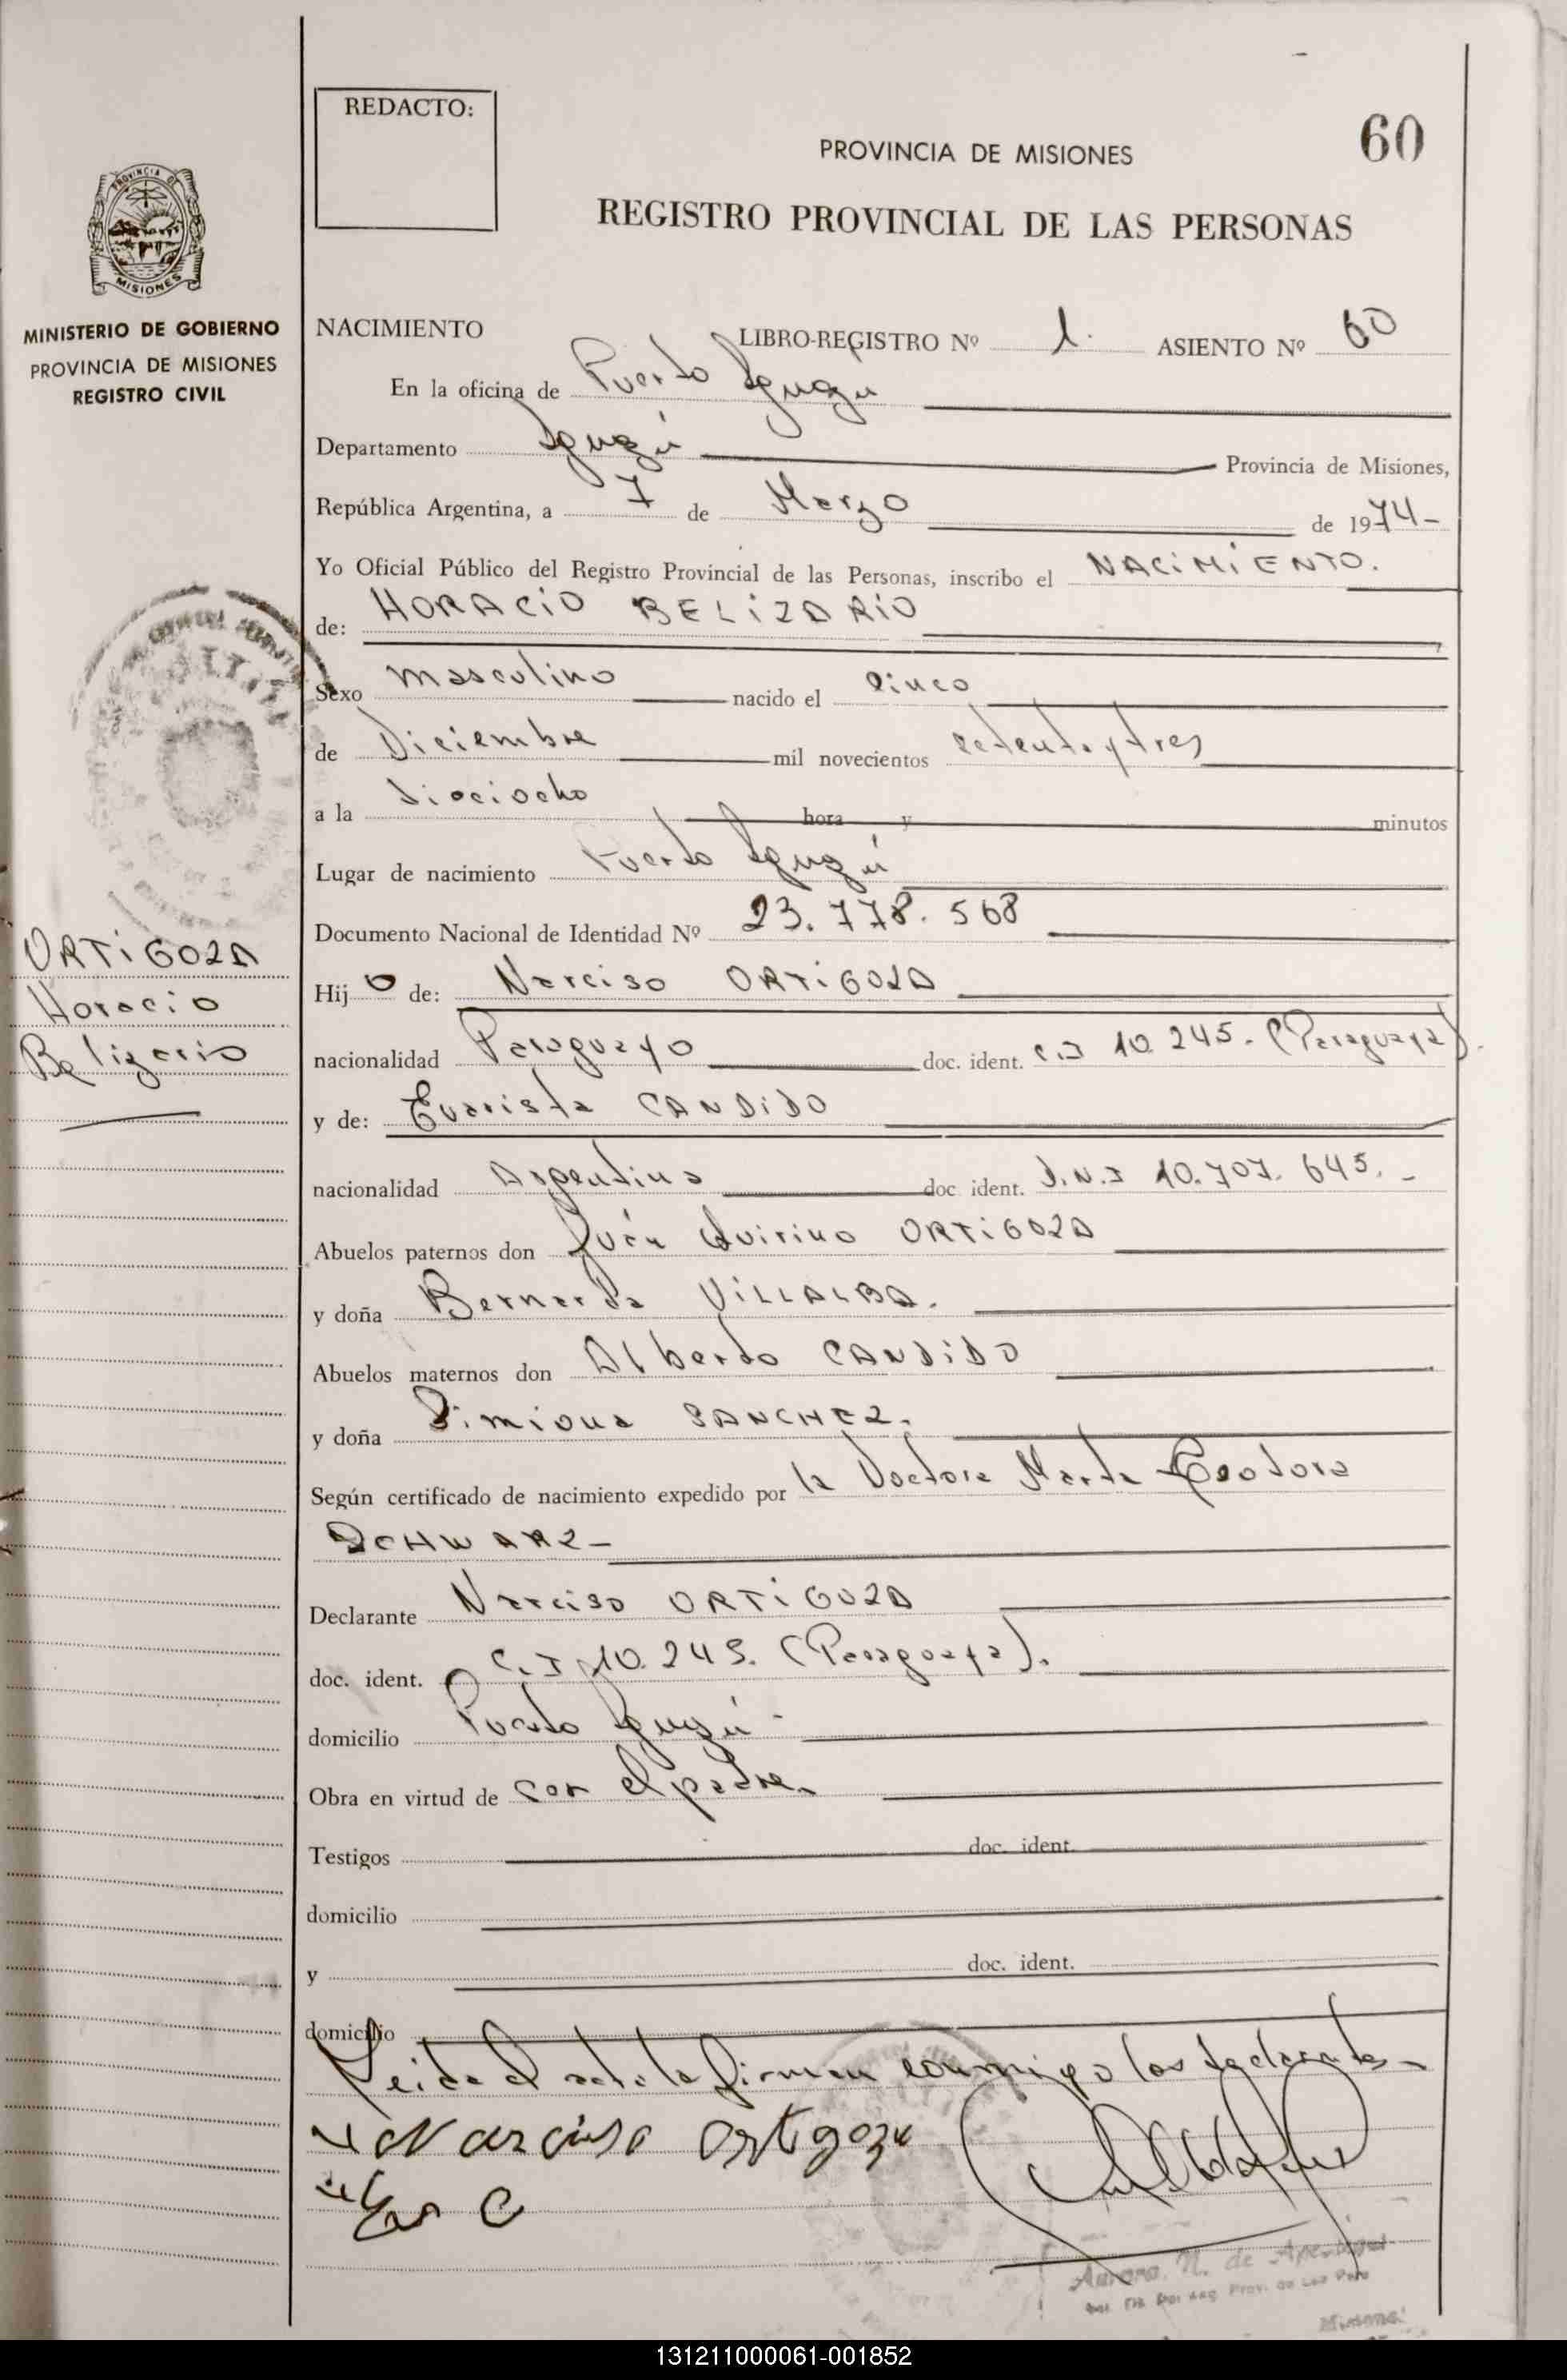 REDACTO:
60
PROVINCIA DE MISIONES
REGISTRO PROVINCIAL DE LAS PERSONAS
PROVINCIA DE
MISIONES
MINISTERIO DE GOBIERNO
PROVINCIA DE MISIONES
REGISTRO CIVIL
NACIMIENTO LIBRO-REGISTRO Nº 1. ASIENTO Nº 60
En la oficina de Puerto Iguazú
Departamento Iguazú Provincia de Misiones,
República Argentina, a 7 de Marzo de 1974-
Yo Oficial Público del Registro Provincial de las Personas, inscribo el NACIMIENTO.
de: HORACIO BELIZARIO
Sexo masculino nacido el cinco
de Diciembre mil novecientos setenta y tres
a la dieciocho hora y minutos
Lugar de nacimiento Puerto Iguazú
Documento Nacional de Identidad Nº 23.778.568
ORTIGOZA
Horacio
Belizario
Hijo de: Narciso ORTIGOZA
nacionalidad Paraguayo doc. ident. C.I 10.245. (Paraguaya).
y de: Evarista CANDIDO
nacionalidad Argentina doc ident. D.N.I 10.707.645.-
Abuelos paternos don Juan Quirino ORTIGOZA
y doña Bernarda VILLALBA.
Abuelos maternos don Alberto CANDIDO
y doña Simiona SANCHEZ.
Según certificado de nacimiento expedido por la Doctora Marta Teodora
SCHWARZ-
Declarante Narciso ORTIGOZA
doc. ident. C.I 10.245. (Paraguaya).
domicilio Puerto Iguazú-
Obra en virtud de ser el padre.
Testigos doc. ident.
domicilio
y doc. ident.
domicilio
Leida el acta la firman conmigo los declarantes-
Narciso Ortigoza
Aurora N. de
131211000061-001852